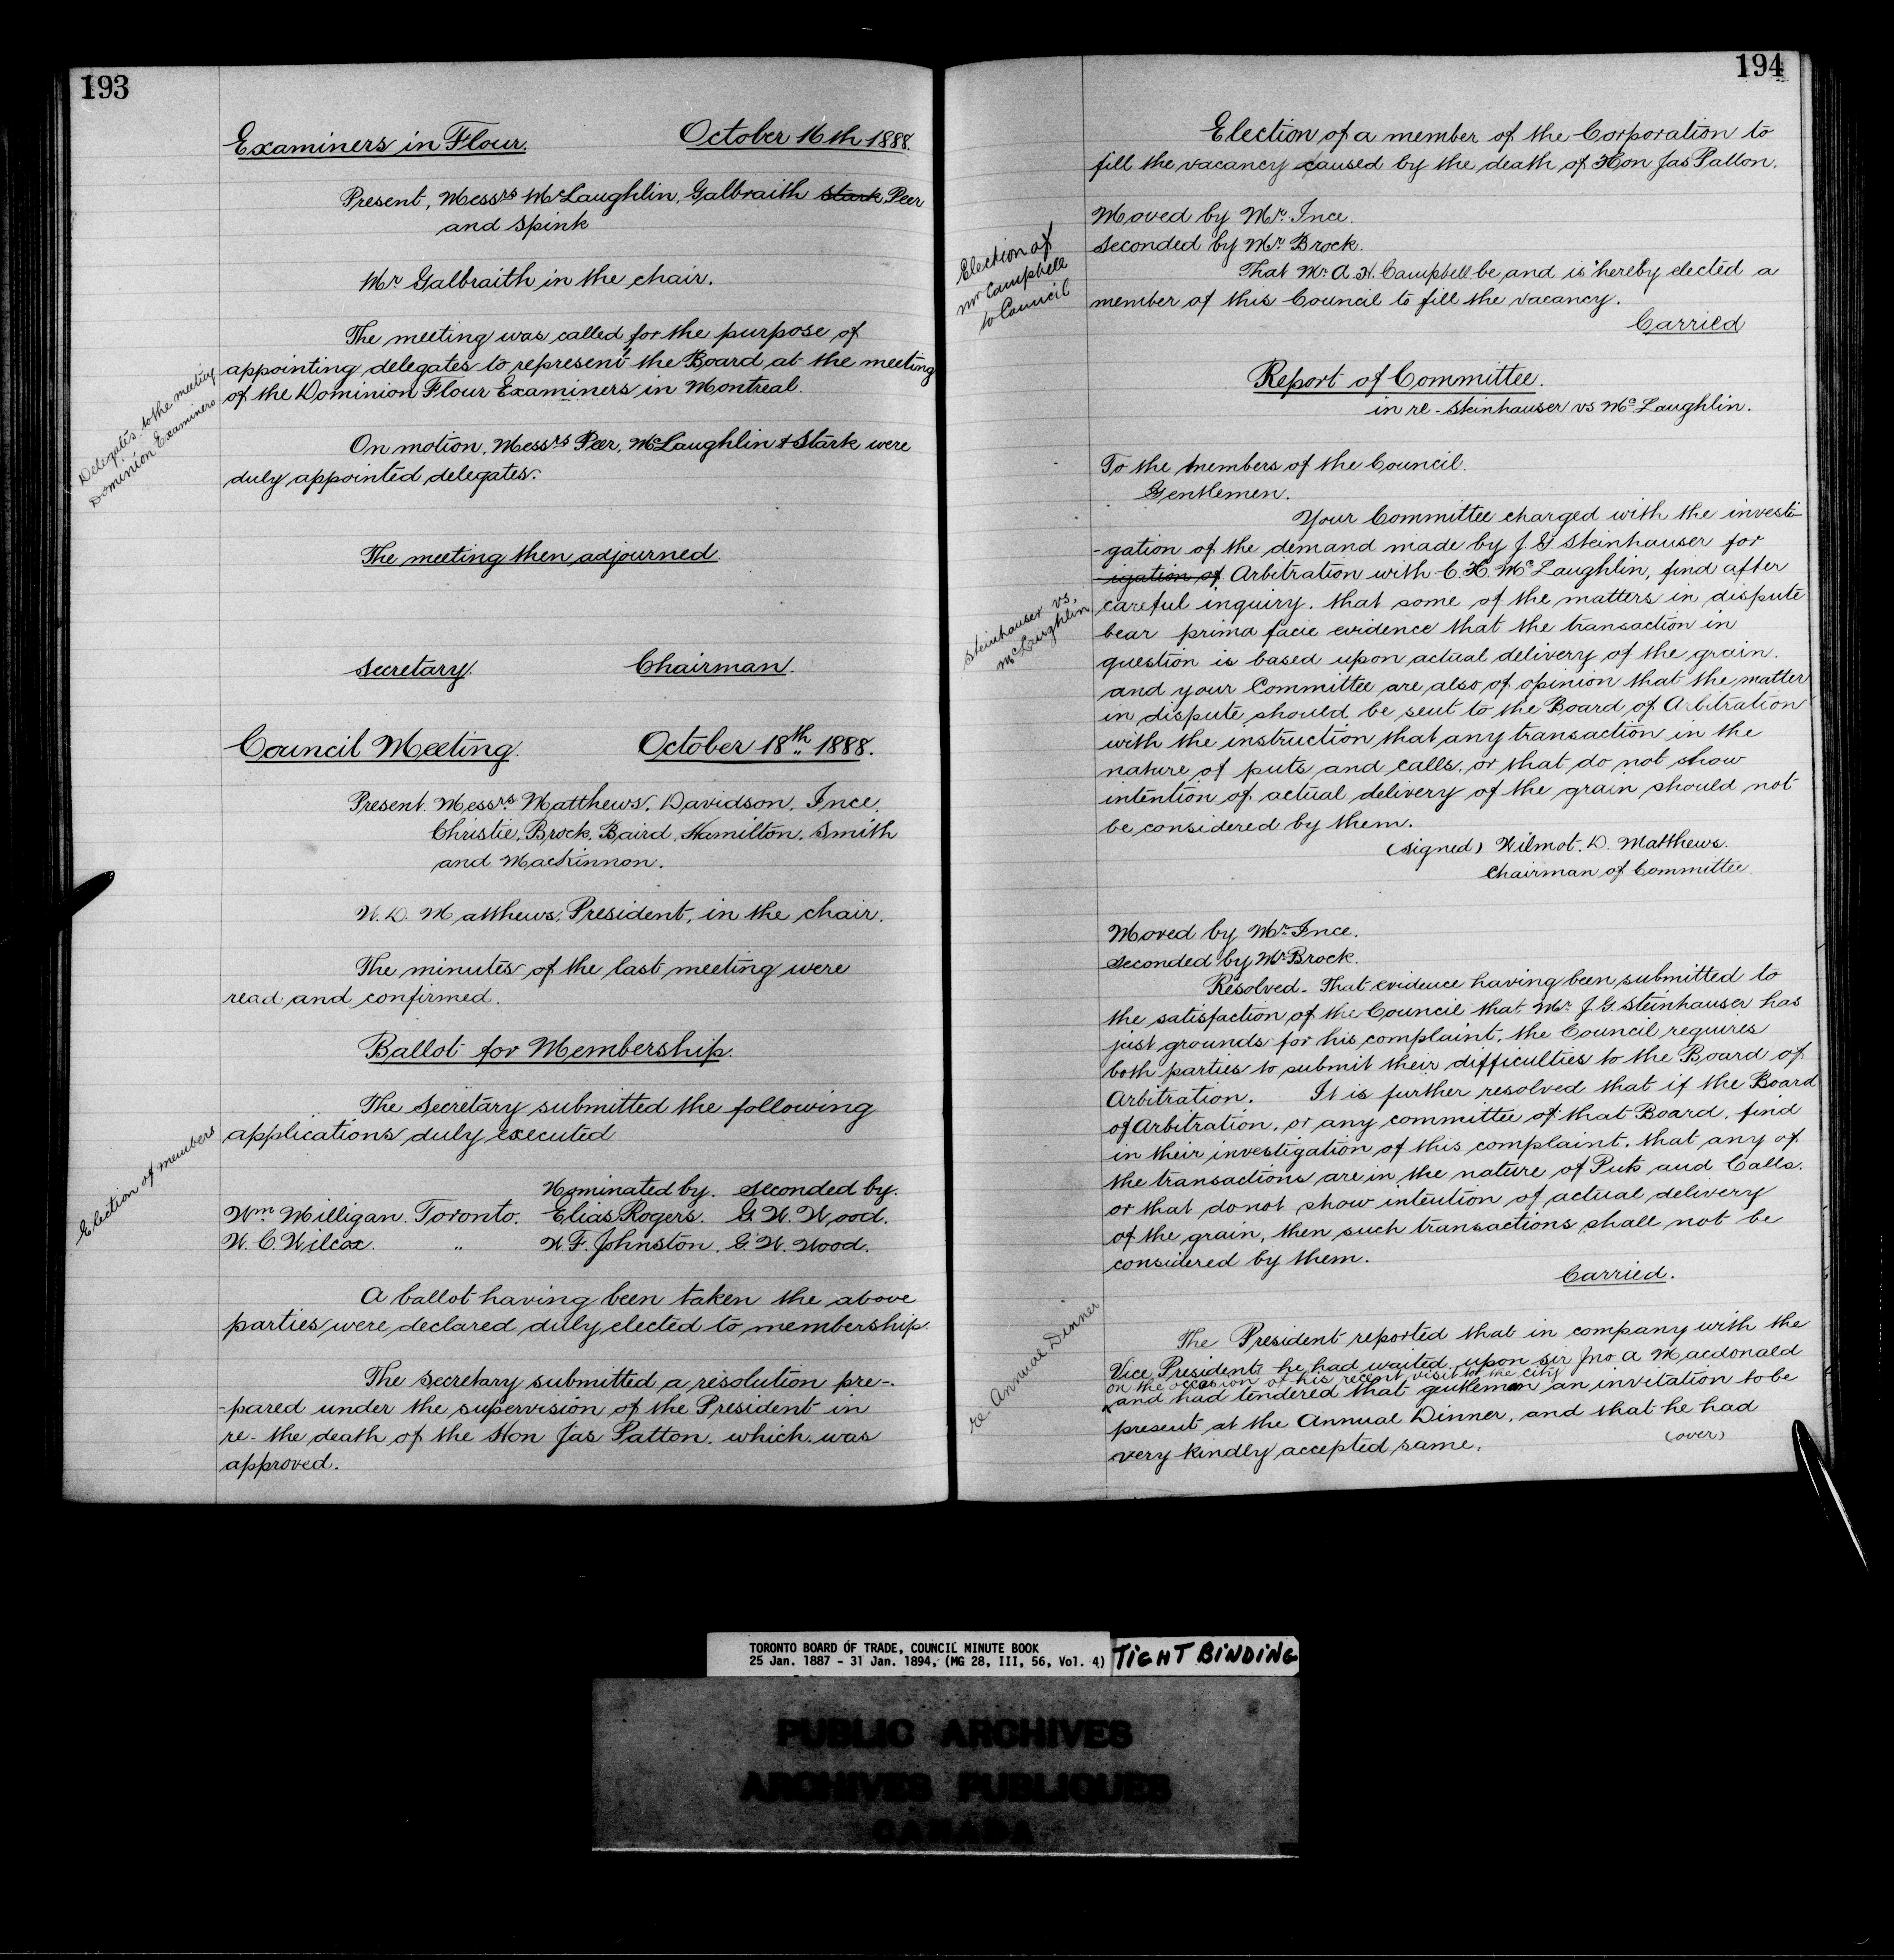 193
Examiners in Flour. October 16th 1888.
Present, Messrs McLaughlin, Galbraith Stark Peer
and Spink
Mr Galbraith in the chair.
The meeting was called for the purpose of
appointing delegates to represent the Board at the meeting
of the Dominion Flour Examiners in Montreal.
Delegates to the meeting
Dominion Examiners
On motion, Messrs Peer, McLaughlin & Stark were
duly appointed delegates.
The meeting then adjourned
Secretary. Chairman.
Council Meeting. October 18th 1888.
Present. Messrs Matthews, Davidson, Ince,
Christie, Brock, Baird, Hamilton, Smith
and MacKinnon.
W. D. Matthews, President, in the chair.
The minutes of the last meeting were
read and confirmed.
Ballot for Membership.
The Secretary submitted the following
applications duly executed
Election of members
Nominated by. Seconded by.
Wm Milligan. Toronto. Elias Rogers. G. W. Wood.
W. C. Wilcox. " W. F. Johnston. G. W. Wood.
A ballot having been taken the above
parties were declared duly elected to membership.
The secretary submitted a resolution pre-
-pared under the supervision of the President in
re- the death of the Hon Jas Patton. which was
approved.
194
Election of a member of the Corporation to
fill the vacancy caused by the death of Hon Jas Patton.
Moved by Mr. Ince.
Seconded by Mr Brock.
Election of
Mr Campbell
to Council
That Mr. A. H. Campbell be and is hereby elected a
member of this Council to fill the vacancy.
Carried
Report of Committee.
in re - Steinhauser vs McLaughlin.
To the Members of the Council.
Gentlemen.
Your Committee charged with the investi-
-gation of the demand made by J. G. Steinhauser for
igation of Arbitration with C. H. McLaughlin, find after
careful inquiry. that some of the matters in dispute
Steinhauser vs.
McLaughlin
bear prima facie evidence that the transaction in
question is based upon actual delivery of the grain.
and your Committee are also of opinion that the matter
in dispute should be sent to the Board of Arbitration
with the instruction that any transaction in the
nature of puts and calls, or that do not show
intention of actual delivery of the grain should not
be considered by them.
(signed) Wilmot. D. Matthews.
Chairman of Committee
Moved by Mr. Ince.
Seconded by Mr Brock.
Resolved - That evidence having been submitted to
the satisfaction of the Council that Mr. J. G. Steinhauser has
just grounds for his complaint, the Council requires
both parties to submit their difficulties to the Board of
Arbitration. It is further resolved that if the Board
of Arbitration, or any committee of that Board, find
in their investigation of this complaint, that any of
the transactions are in the nature of Puts and Calls.
or that do not show intention of actual delivery
of the grain, then such transactions shall not be
considered by them.
Carried.
re- Annual Dinner
The President reported that in company with the
Vice Presidents he had waited upon Sir Jno A Macdonald
on the occasion of his recent visit to the city
and had tendered that gentleman an invitation to be
present at the Annual Dinner, and that he had
very kindly accepted same.
(over)
TORONTO BOARD OF TRADE, COUNCIL MINUTE BOOK
25 Jan. 1887 - 31 Jan. 1894, (MG 28, III, 56, Vol. 4)
TIGHT BINDING
PUBLIC ARCHIVES
ARCHIVES PUBLIQUES
CANADA